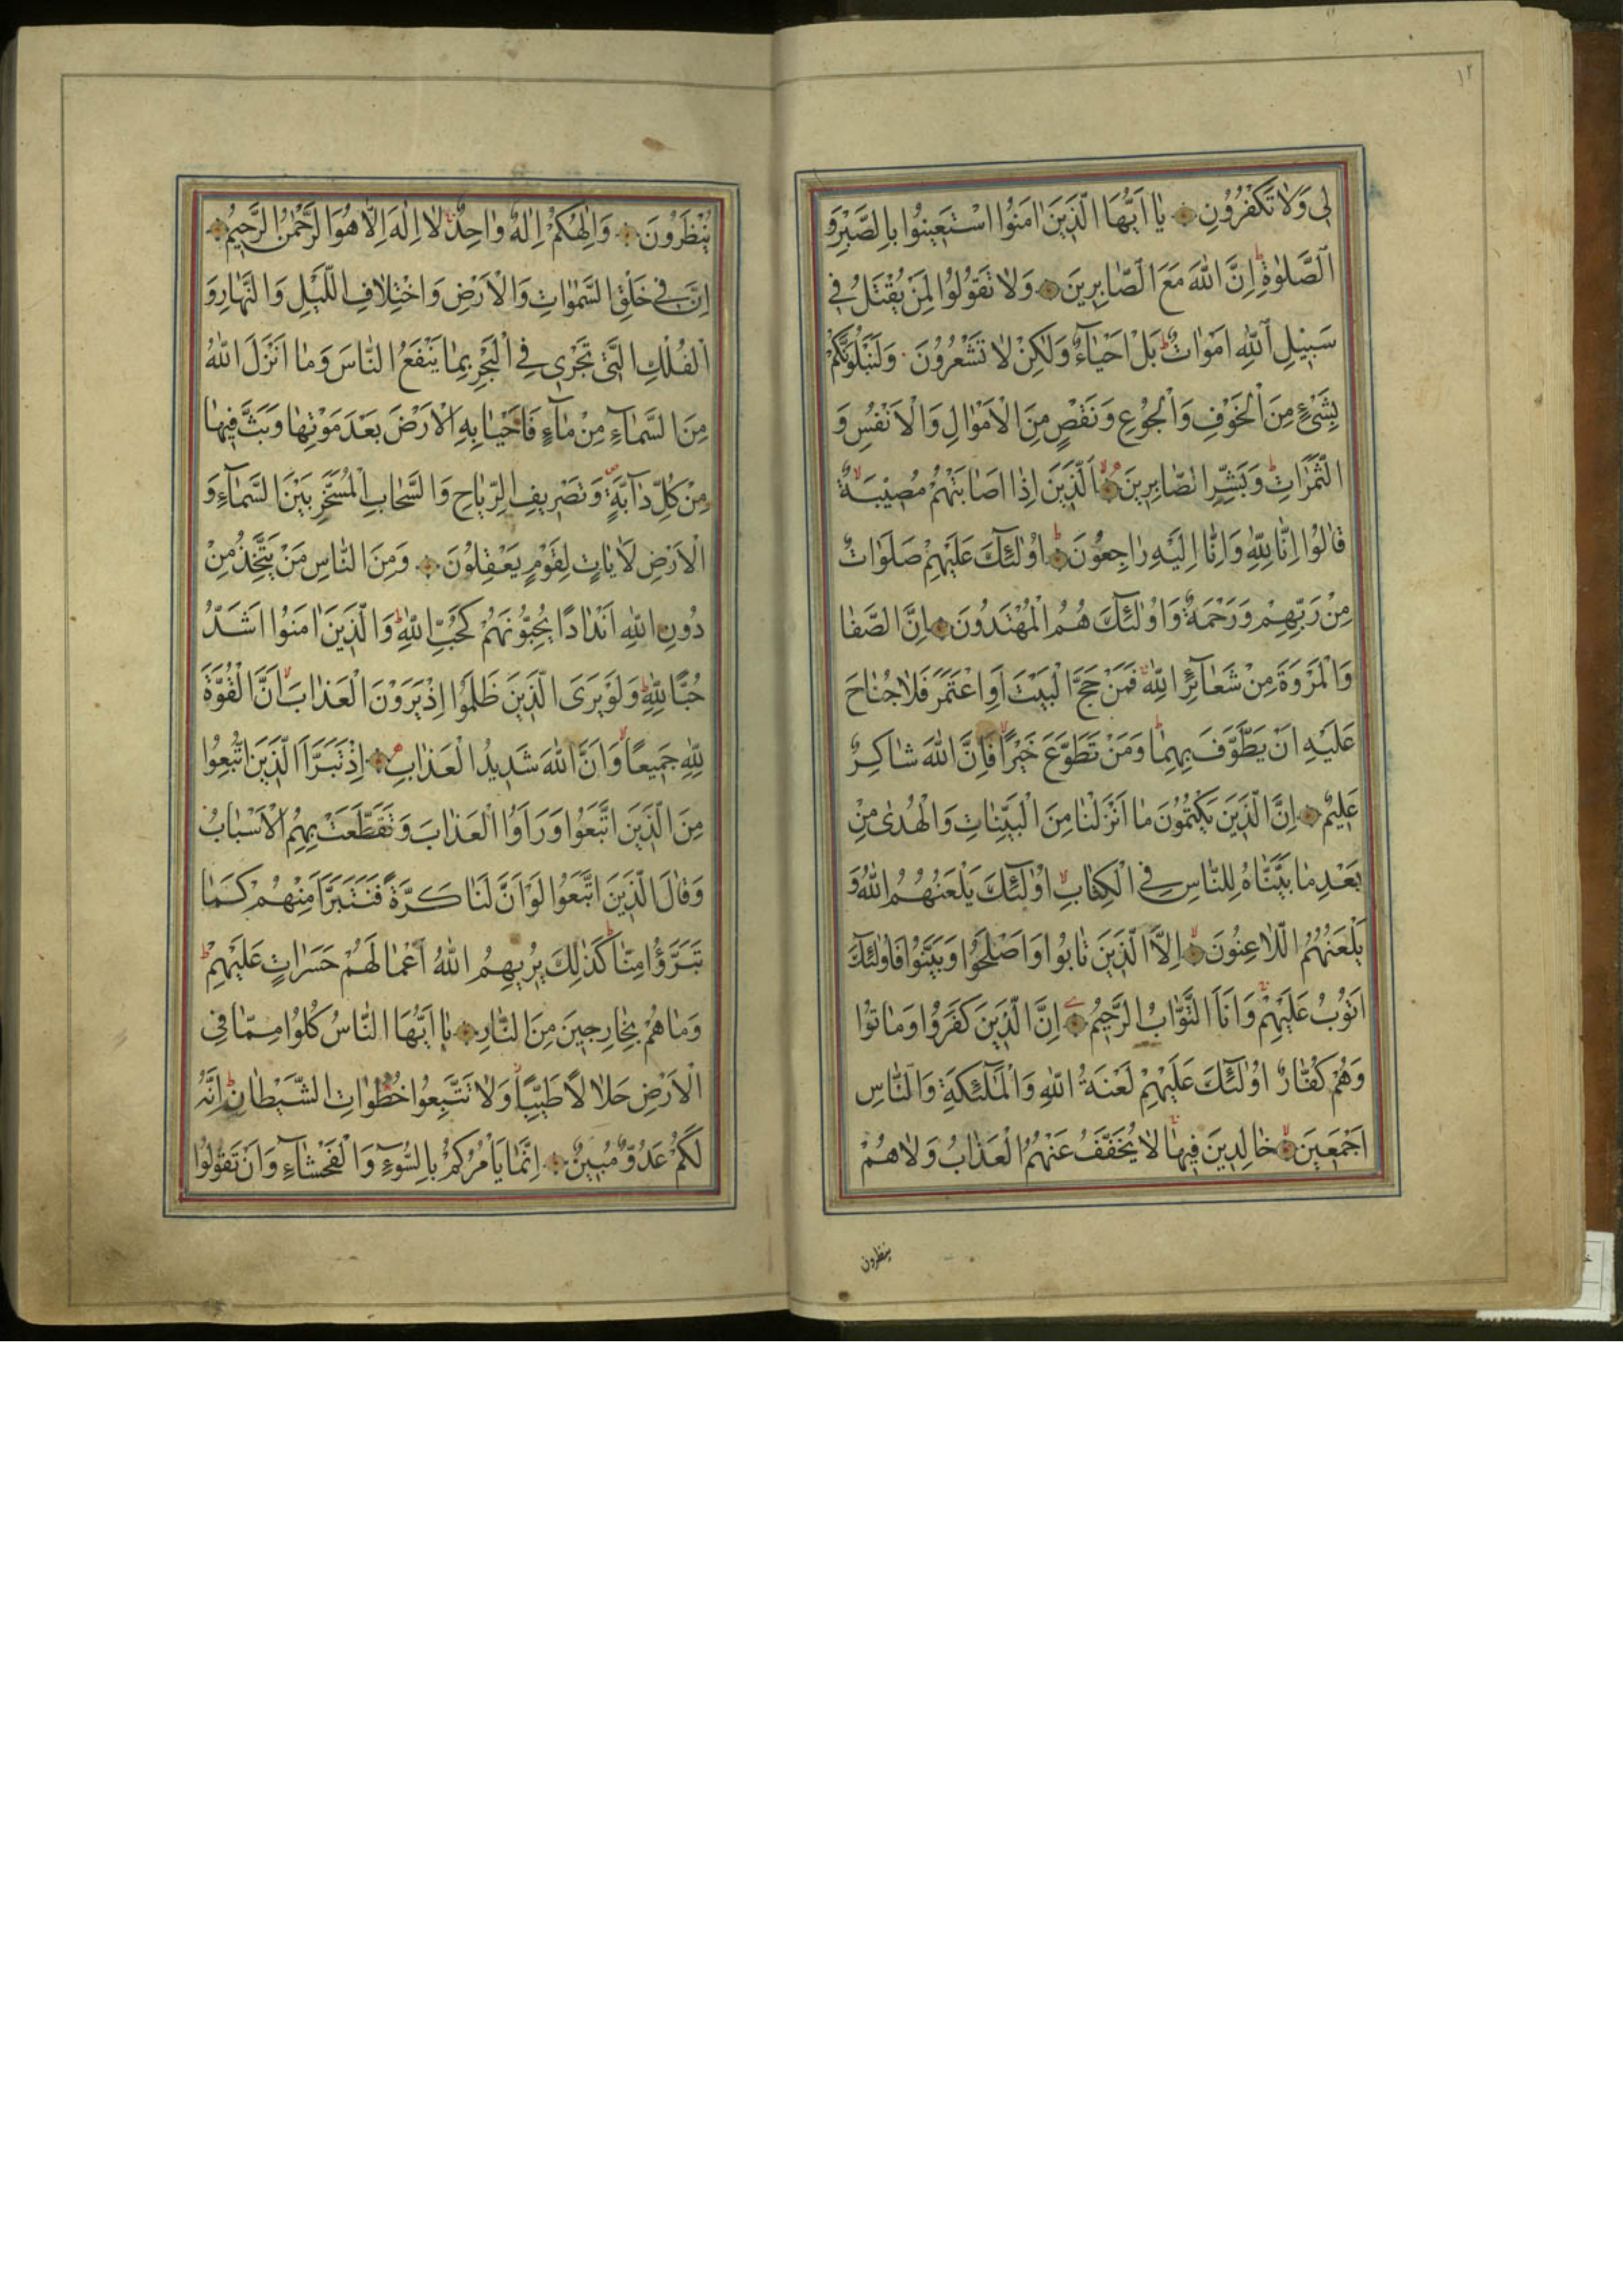 ١٢
لِى وَلَا تَكْفُرُونِ يَا اَيُّهَا الَّذِينَ اٰمَنُوا اسْتَعِينُوا بِالصَّبْرِ وَ
الصَّلٰوةِ اِنَّ اللهَ مَعَ الصَّابِرِينَ وَلَا تَقُولُوا لِمَنْ يُقْتَلُ فِى
سَبِيلِ اللهِ اَمْوَاتٌ بَلْ اَحْيَاءٌ وَلٰكِنْ لَا تَشْعُرُونَ وَلَنَبْلُوَنَّكُمْ
بِشَىْءٍ مِنَ الْخَوْفِ وَالْجُوعِ وَنَقْصٍ مِنَ الْاَمْوَالِ وَالْاَنْفُسِ وَ
الثَّمَرَاتِ وَبَشِّرِ الصَّابِرِينَ اَلَّذِينَ اِذَا اَصَابَتْهُمْ مُصِيبَةٌ
قَالُوا اِنَّا لِلّٰهِ وَاِنَّا اِلَيْهِ رَاجِعُونَ اُولٰئِكَ عَلَيْهِمْ صَلَوَاتٌ
مِنْ رَبِّهِمْ وَرَحْمَةٌ وَاُولٰئِكَ هُمُ الْمُهْتَدُونَ اِنَّ الصَّفَا
وَالْمَرْوَةَ مِنْ شَعَائِرِ اللهِ فَمَنْ حَجَّ الْبَيْتَ اَوِ اعْتَمَرَ فَلَا جُنَاحَ
عَلَيْهِ اَنْ يَطَّوَّفَ بِهِمَا وَمَنْ تَطَوَّعَ خَيْرًا فَاِنَّ اللهَ شَاكِرٌ
عَلِيمٌ اِنَّ الَّذِينَ يَكْتُمُونَ مَا اَنْزَلْنَا مِنَ الْبَيِّنَاتِ وَالْهُدٰى مِنْ
بَعْدِ مَا بَيَّنَّاهُ لِلنَّاسِ فِى الْكِتَابِ اُولٰئِكَ يَلْعَنُهُمُ اللهُ وَ
يَلْعَنُهُمُ اللَّاعِنُونَ اِلَّا الَّذِينَ تَابُوا وَاَصْلَحُوا وَبَيَّنُوا فَاُولٰئِكَ
اَتُوبُ عَلَيْهِمْ وَاَنَا التَّوَّابُ الرَّحِيمُ اِنَّ الَّذِينَ كَفَرُوا وَمَاتُوا
وَهُمْ كُفَّارٌ اُولٰئِكَ عَلَيْهِمْ لَعْنَةُ اللهِ وَالْمَلٰئِكَةِ وَالنَّاسِ
اَجْمَعِينَ خَالِدِينَ فِيهَا لَا يُخَفَّفُ عَنْهُمُ الْعَذَابُ وَلَا هُمْ
ينظرون
يُنْظَرُونَ وَاِلٰهُكُمْ اِلٰهٌ وَاحِدٌ لَا اِلٰهَ اِلَّا هُوَ الرَّحْمٰنُ الرَّحِيمُ
اِنَّ فِى خَلْقِ السَّمٰوَاتِ وَالْاَرْضِ وَاخْتِلَافِ اللَّيْلِ وَالنَّهَارِ وَ
الْفُلْكِ الَّتِى تَجْرِى فِى الْبَحْرِ بِمَا يَنْفَعُ النَّاسَ وَمَا اَنْزَلَ اللهُ
مِنَ السَّمَاءِ مِنْ مَاءٍ فَاَحْيَا بِهِ الْاَرْضَ بَعْدَ مَوْتِهَا وَبَثَّ فِيهَا
مِنْ كُلِّ دَابَّةٍ وَتَصْرِيفِ الرِّيَاحِ وَالسَّحَابِ الْمُسَخَّرِ بَيْنَ السَّمَاءِ وَ
الْاَرْضِ لَاٰيَاتٍ لِقَوْمٍ يَعْقِلُونَ وَمِنَ النَّاسِ مَنْ يَتَّخِذُ مِنْ
دُونِ اللهِ اَنْدَادًا يُحِبُّونَهُمْ كَحُبِّ اللهِ وَالَّذِينَ اٰمَنُوا اَشَدُّ
حُبًّا لِلّٰهِ وَلَوْ يَرَى الَّذِينَ ظَلَمُوا اِذْ يَرَوْنَ الْعَذَابَ اَنَّ الْقُوَّةَ
لِلّٰهِ جَمِيعًا وَاَنَّ اللهَ شَدِيدُ الْعَذَابِ اِذْ تَبَرَّاَ الَّذِينَ اتُّبِعُوا
مِنَ الَّذِينَ اتَّبَعُوا وَرَاَوُا الْعَذَابَ وَتَقَطَّعَتْ بِهِمُ الْاَسْبَابُ
وَقَالَ الَّذِينَ اتَّبَعُوا لَوْ اَنَّ لَنَا كَرَّةً فَنَتَبَرَّاَ مِنْهُمْ كَمَا
تَبَرَّؤُا مِنَّا كَذٰلِكَ يُرِيهِمُ اللهُ اَعْمَالَهُمْ حَسَرَاتٍ عَلَيْهِمْ
وَمَا هُمْ بِخَارِجِينَ مِنَ النَّارِ يَا اَيُّهَا النَّاسُ كُلُوا مِمَّا فِى
الْاَرْضِ حَلَالًا طَيِّبًا وَلَا تَتَّبِعُوا خُطُوَاتِ الشَّيْطَانِ اِنَّهُ
لَكُمْ عَدُوٌّ مُبِينٌ اِنَّمَا يَاْمُرُكُمْ بِالسُّوءِ وَالْفَحْشَاءِ وَاَنْ تَقُولُوا